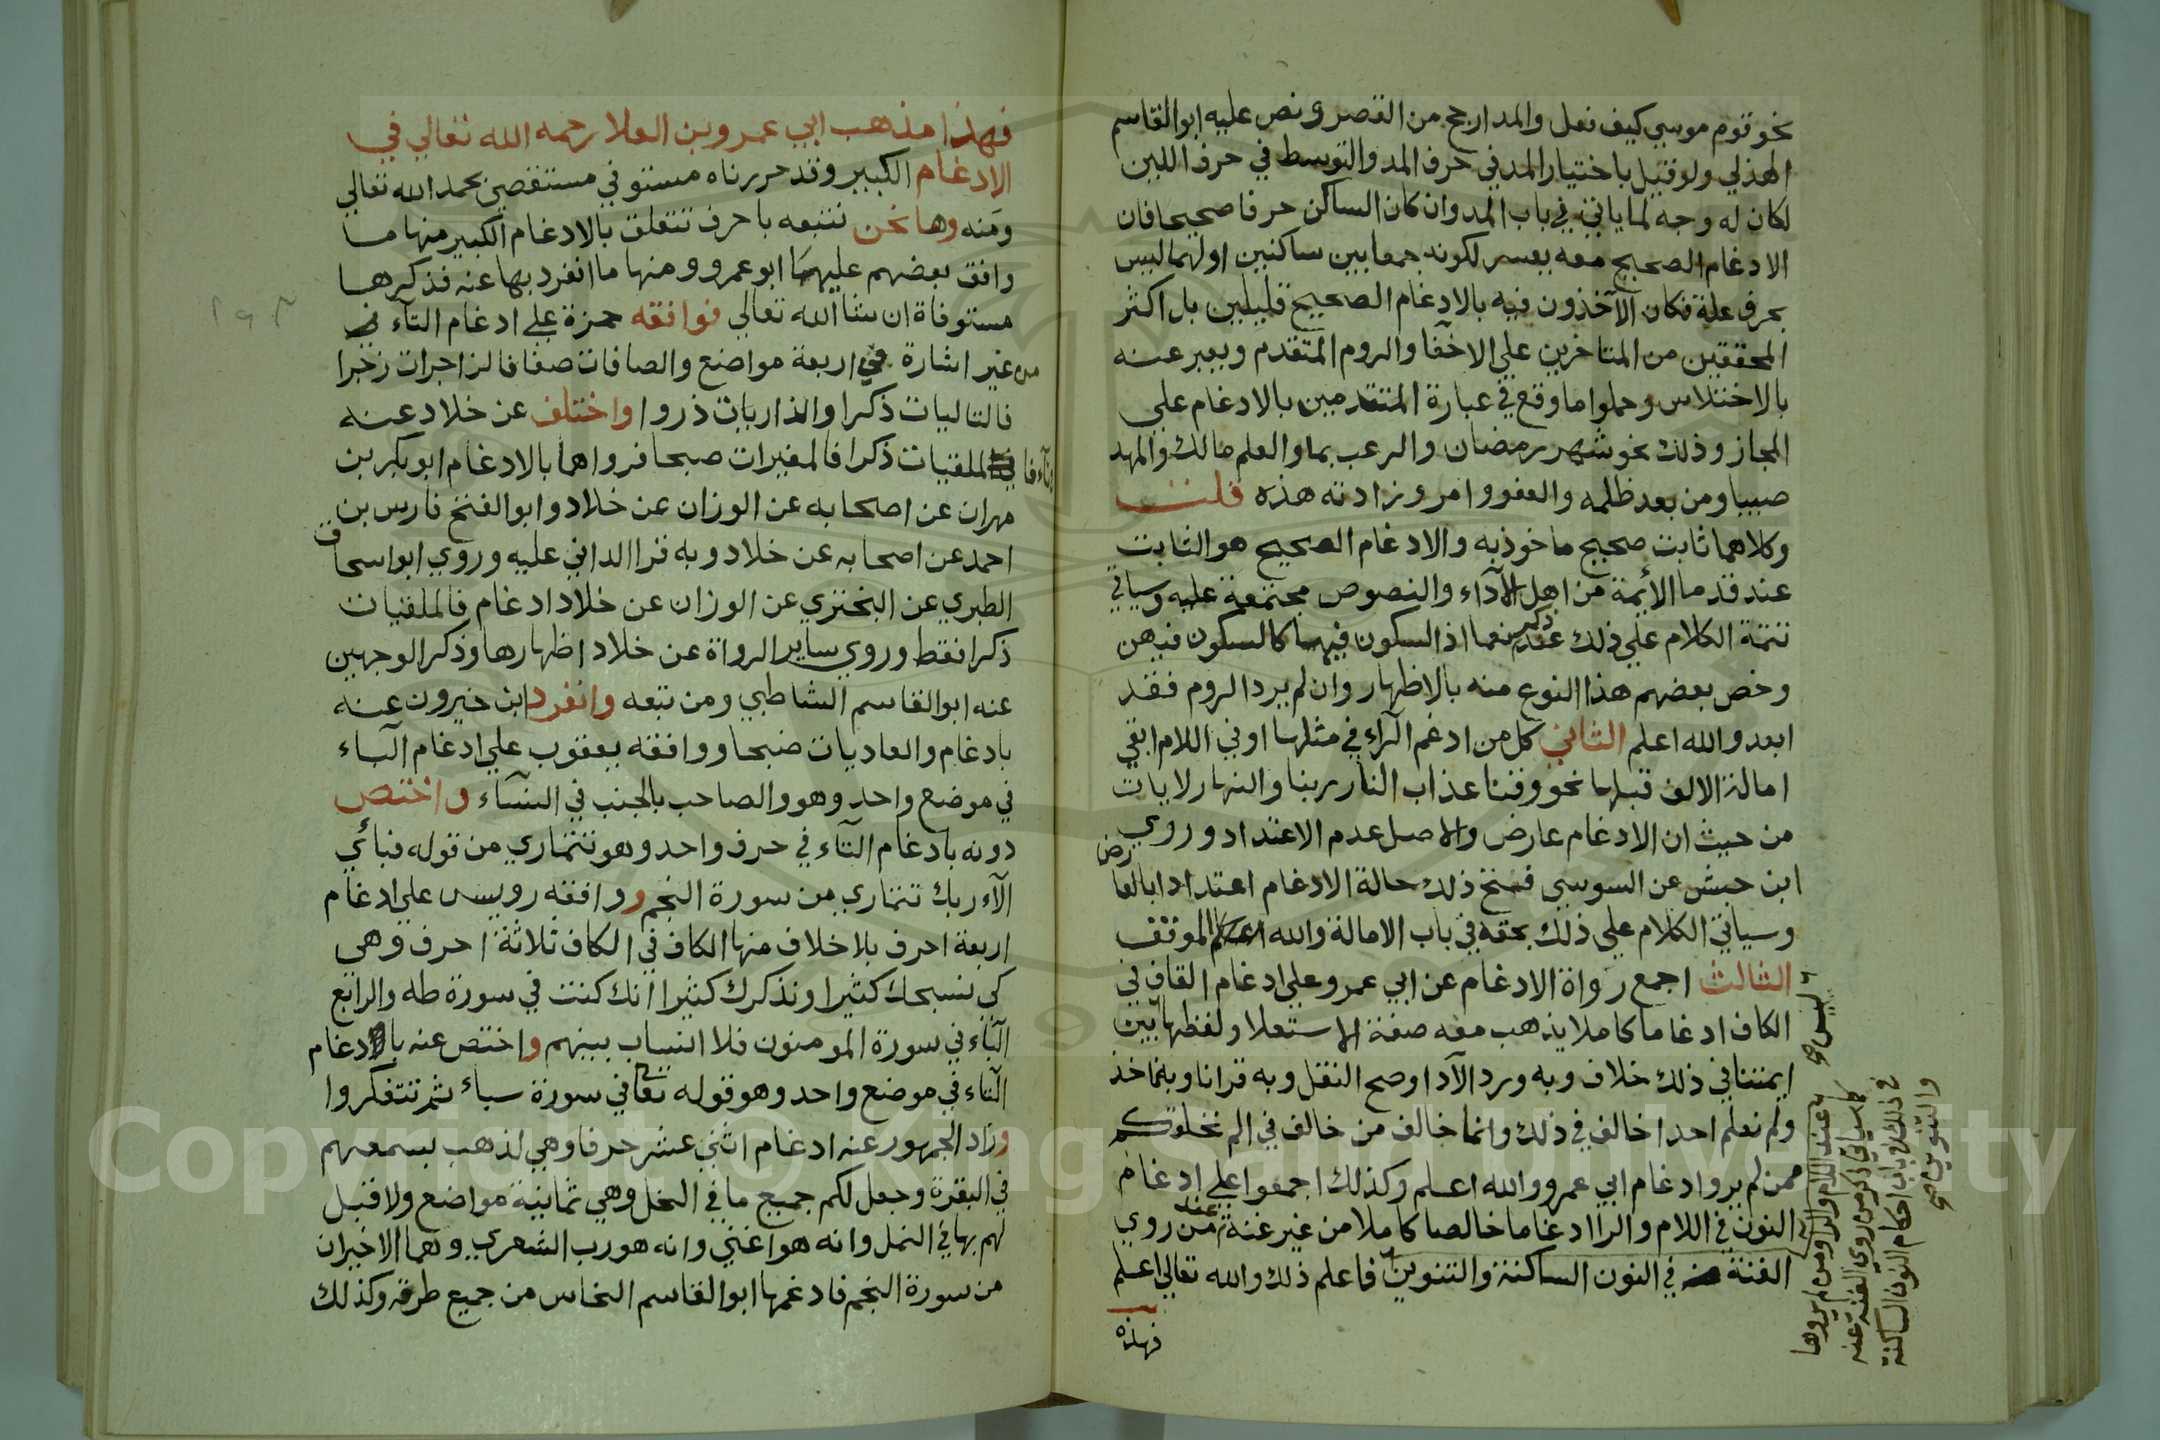 نحو قوم موسي كيف فعل والمد ارجح من القصر ونص عليه ابو القاسم
الهذلي ولو قيل باختيار المد في حرف المد والتوسط في حرف اللين
لكان له وجه لما ياتي في باب المد وان كان الساكن حرفا صحيحا فان
الادغام الصحيح معه يعسر لكونه جمعا بين ساكنين اولهما ليس
بحرف علة فكان الآخذون فيه بالادغام الصحيح قليلين بل اكثر
المحققين من المتاخرين علي الاخفا والروم المتقدم ويعبر عنه
بالاختلاس وحملوا ما وقع في عبارة المتقدمين بالادغام علي
المجاز وذلك نحو شهر رمضان والرعب بما والعلم مالك والمهد
صبيا ومن بعد ظلمه والعفو وامر وزادته هذه قلت
وكلاهما ثابت صحيح ماخوذ به والادغام الصحيح هو الثابت
عند قدما الأئمة من اهل الآداء والنصوص مجتمعة عليه وسياتي
تتمة الكلام علي ذلك عند ذكر نعما اذ السكون فيها كالسكون فيهن
وخص بعضهم هذا النوع منه بالاظهار وان لم يرد الروم فقد
ابعد والله اعلم الثاني كل من ادغم الرآء في مثلها او في اللام ابقي
امالة الالف قبلها نحو وقنا عذاب النار ربنا والنهار لايات
من حيث ان الادغام عارض والاصل عدم الاعتداد وروي
ابن حبش عن السوسي فتح ذلك حالة الادغام اعتدادا بالعارض
وسياتي الكلام علي ذلك بحقه في باب الامالة والله الموفق
الثالث اجمع رواة الادغام عن ابي عمرو علي ادغام القاف في
الكاف ادغاما كاملا يذهب معه صفة الاستعلا ولفظها ليس بين
ايمتنا في ذلك خلاف وبه ورد الآدا وصح النقل وبه قرانا وبه ناخذ
ولم نعلم احدا خالف في ذلك وانما خالف من خالف في الم نخلقكم
ممن لم يرو ادغام ابي عمرو والله اعلم وكذلك اجمعوا علي ادغام
النون في اللام والرا ادغاما خالصا كاملا من غير غنة عند من روي
الغنة في النون الساكنة والتنوين فاعلم ذلك والله تعالي اعلم
فهذه
ليس صح
عند اللام والرا ومن لم يروها
كما سياتي ذكر من روي الغنة عنه
في ذلك في باب احكام النون الساكنة
والتنوين صح
فهذا مذهب ابي عمرو بن العلا رحمه الله تعالي في
الادغام الكبير وقد حررناه مستوفي مستقصي بحمد الله تعالي
ومَنه وها نحن نتبعه باحرف تتعلق بالادغام الكبير منها ما
وافق بعضهم عليها ابو عمرو ومنها ما انفرد بها عنه فذكرها
مستوفاة ان شا الله تعالي فوافقه حمزة علي ادغام التآء
من غير اشارة في اربعة مواضع والصافات صفا فالزاجرات زجرا
فالتاليات ذكرا والذاريات ذروا واختلف عن خلاد عنه
فالملقيات ذكرا فالمغيرات صبحا فرواهما بالادغام ابو بكر بن
مهران عن اصحابه عن الوزان عن خلاد وابو الفتح فارس بن
احمد عن اصحابه عن خلاد وبه قرا الداني عليه وروي ابو اسحاق
الطبري عن البختري عن الوزان عن خلاد ادغام فالملقيات
ذكرا فقط وروي ساير الرواة عن خلاد اظهارها وذكر الوجهين
عنه ابو القاسم الشاطبي ومن تبعه وانفرد ابن خيرون عنه
بادغام والعاديات ضبحا ووافقه يعقوب علي ادغام البآء
في موضع واحد وهو والصاحب بالجنب في النسآء واختص
دونه بادغام التآء في حرف واحد وهو تتماري من قوله فبأي
الآء ربك تتماري من سورة النجم ووافقه رويس علي ادغام
اربعة احرف بلا خلاف منها الكاف في الكاف ثلاثة احرف وهي
كي نسبحك كثيرا ونذكرك كثيرا انك كنت في سورة طه والرابع
البآء في سورة المومنون فلا انساب بينهم واختص عنه بادغام
التاء في موضع واحد وهو قوله تعا في سورة سباء ثم تتفكروا
وزاد الجمهور عنه ادغام اثني عشر حرفا وهي لذهب بسمعهم
في البقرة وجعل لكم جميع ما في النحل وهي ثمانية مواضع ولا قبل
لهم بها في النمل وانه هو اغني وانه هو رب الشعري وهما الاخيران
من سورة النجم فادغمها ابو القاسم النخاس من جميع طرقه وكذلك
Copyright © King Saud University